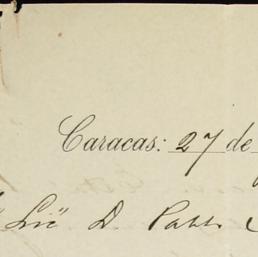 Caracas: 27 de
"Lic" D. Pablo